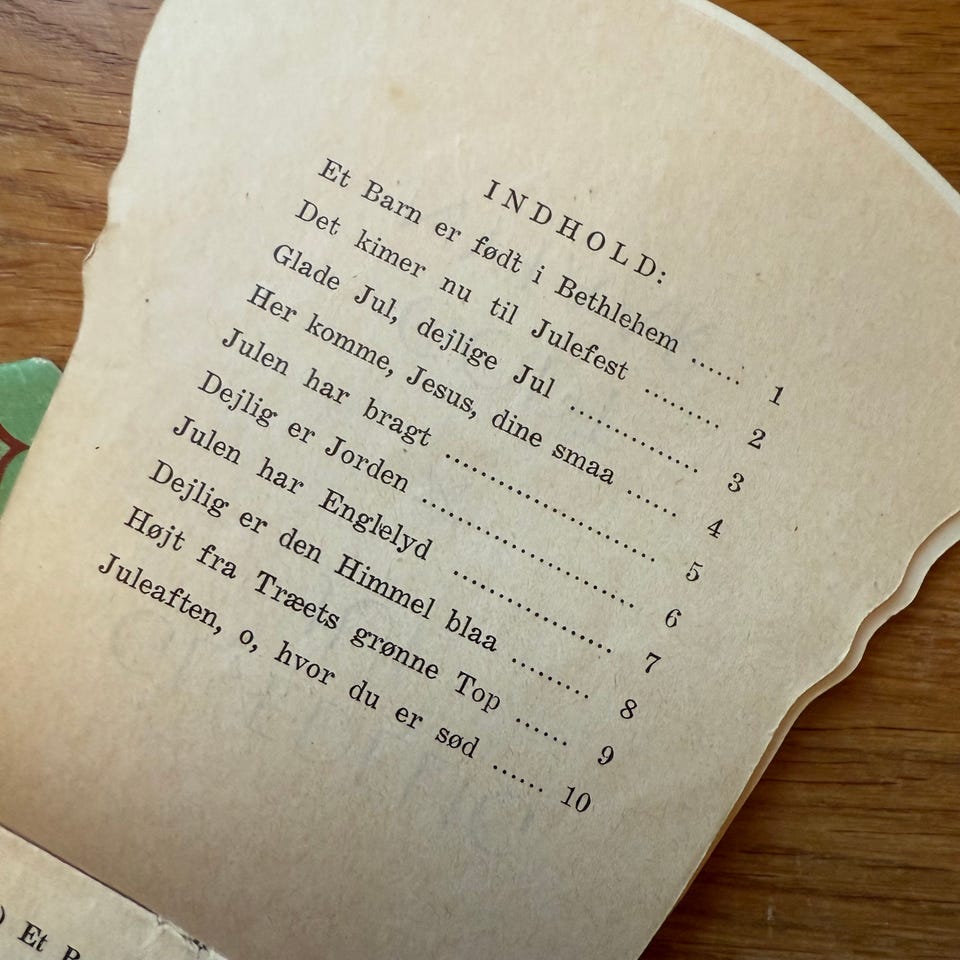 INDHOLD:
Et Barn er født i Bethlehem ...... 1
Det kimer nu til Julefest ......... 2
Glade Jul, dejlige Jul ............... 3
Her komme, Jesus, dine smaa ...... 4
Julen har bragt ......................... 5
Dejlig er Jorden ......................... 6
Julen har Englelyd .................. 7
Dejlig er den Himmel blaa ......... 8
Højt fra Træets grønne Top ...... 9
Juleaften, o, hvor du er sød ...... 10
Et